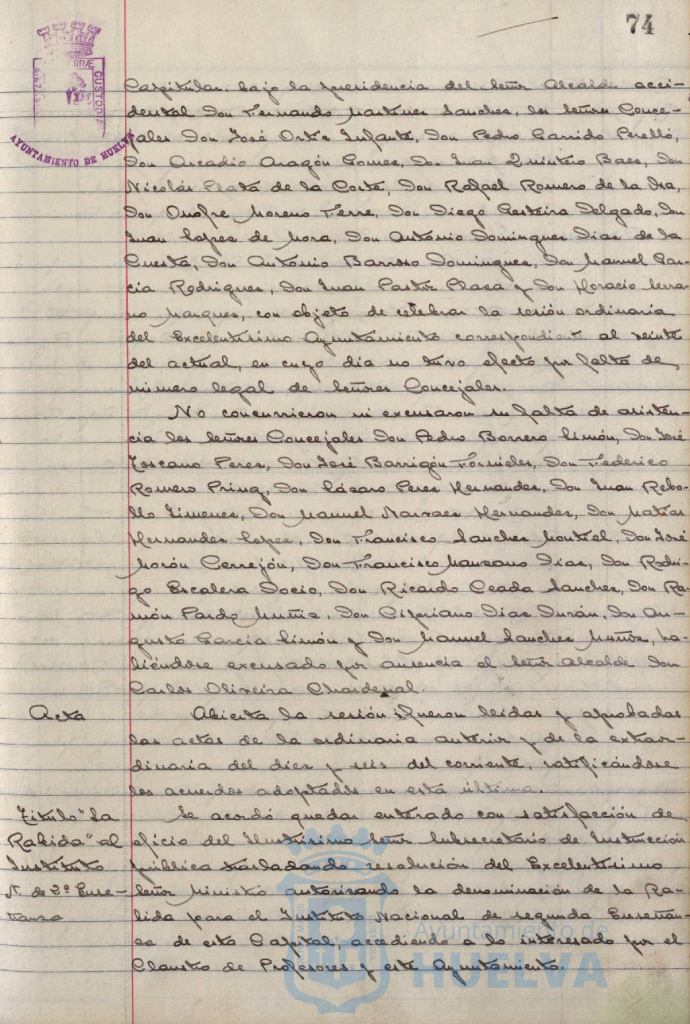 74
CUSTODIA
AYUNTAMIENTO DE HUELVA
Capitular bajo la presidencia del Señor Alcalde acci-
dental Don Fernando Martinez Sanchez, los Señores Conce-
jales Don José Ortiz Infante, Don Pedro Garrido Perelló,
Don Arcadio Aragón Gomez, Don Juan Quintero Baez, Don
Nicolás Plata de la Corte, Don Rafael Romero de la Isa,
Don Onofre Moreno Ferre, Don Diego Garteira Delgado, Don
Juan Lopez de Mora, Don Antonio Dominguez Diaz de la
Cuesta, Don Antonio Barroso Dominguez, Don Manuel Gar-
cia Rodriguez, Don Juan Pastor Plaza y Don Horacio Serra-
no Marquez, con objeto de celebrar la sesión ordinaria
del Excelentisimo Ayuntamiento correspondiente al veinte
del actual, en cuyo dia no tuvo efecto por falta de
número legal de Señores Concejales.
No concurrieron ni excusaron su falta de asisten-
cia los Señores Concejales Don Pedro Borrero Limón, Don José
Toscano Perez, Don José Barrigón Fornieles, Don Federico
Romero Prinz, Don Lázaro Perez Hernandez, Don Juan Rebo-
llo Jimenez, Don Manuel Narvaez Hernandez, Don Matias
Hernandez Lopez, Don Francisco Sanchez Montiel, Don José
Morón Cerrejón, Don Francisco Manzano Diaz, Don Rodri-
go Escalera Socio, Don Ricardo Ceada Sanchez, Don Ra-
món Pardo Muñiz, Don Cipriano Diaz Durán, Don Au-
gusto Garcia Limón y Don Manuel Sanchez Muñoz, ha-
biéndose excusado por ausencia el Señor Alcalde Don
Carlos Oliveira Chardenal.
Acta
Abierta la sesión fueron leidas y aprobadas
las actas de la ordinaria anterior y de la extraor-
dinaria del diez y seis del corriente, ratificándose
los acuerdos adoptados en esta última.
Titulo "La
Rabida" al
Instituto
N. de 2ª Ense-
ñanza
Se acordó quedar enterado con satisfacción de
oficio del Ilustrisimo Señor Subsecretario de Instrucción
pública trasladando resolución del Excelentisimo
Señor Ministro autorizando la denominación de la Ra-
bida para el Instituto Nacional de segunda Enseñan-
za de esta Capital, accediendo a lo interesado por el
Claustro de Profesores y este Ayuntamiento.
Ayuntamiento de
HUELVA